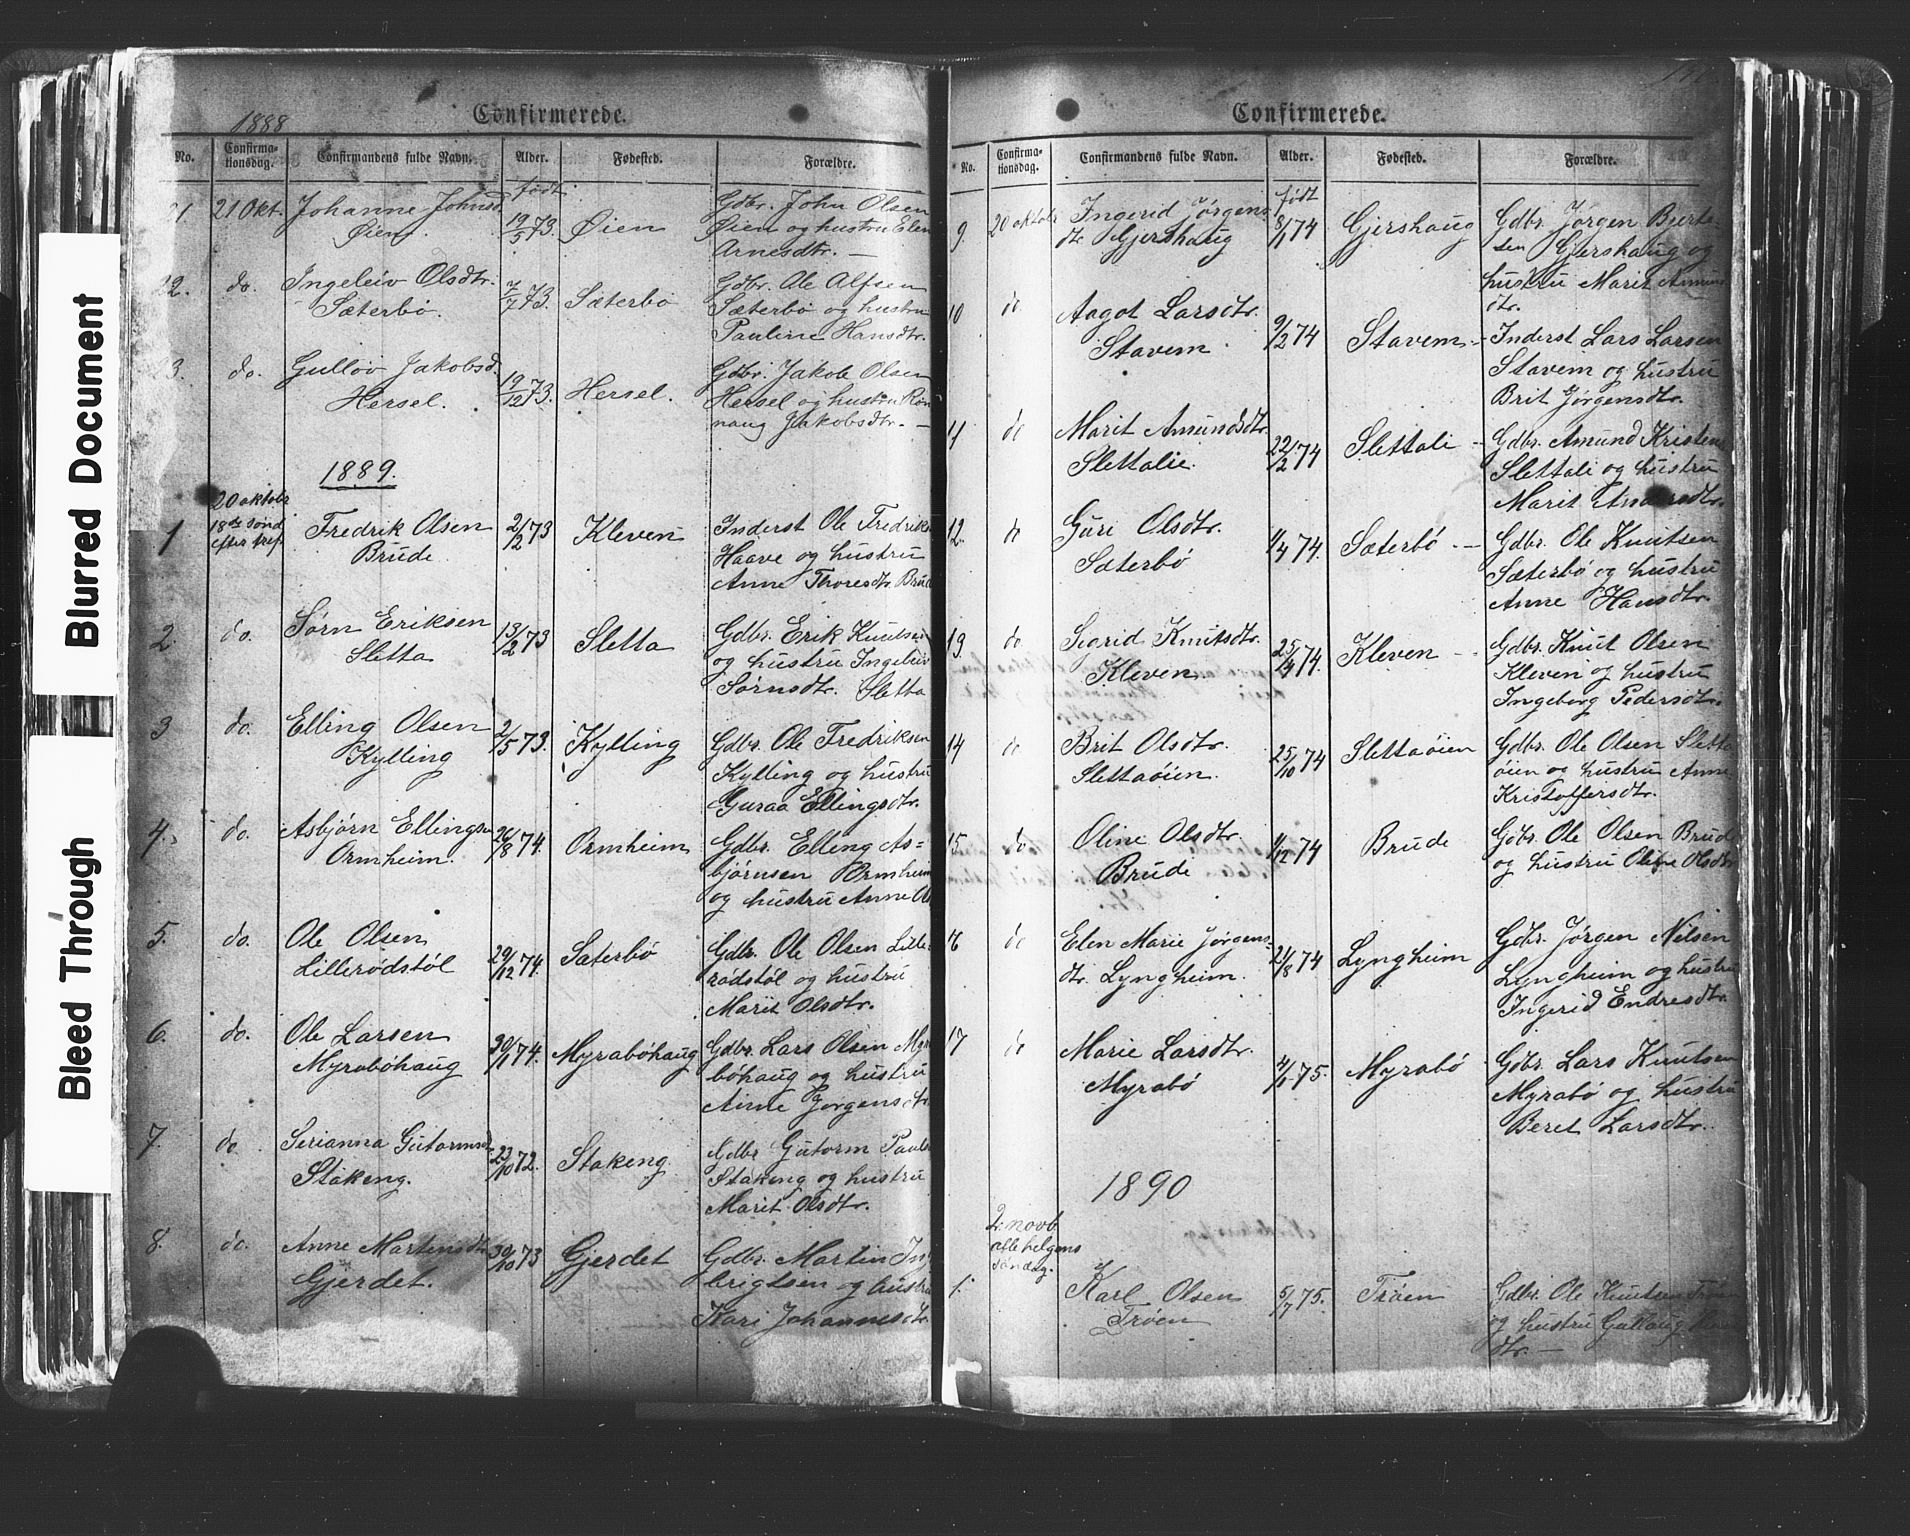 Blurred Document
Bleed Through
1888
Confirmerede.
No. Confirma- Confirmandens fulde Navn. Alder. Fødested. Forældre.
tionsdag.
født
21. 21 Okt. Johanne Johnsd. 19/5 73. Øien Gdbr. John Olsen
Øien. Øien og hustru Elen
Arnesdtr. —
22. do. Ingeleiv Olsdtr. 7/7 73. Sæterbø Gdbr. Ole Alfsen
Sæterbø. Sæterbø og hustru
Pauline Hansdtr.
23. do. Gulløv Jakobsd. 19/12 73. Hersel. Gdbr. Jakob Olsen
Hersel. Hersel og hustru Røn
naug Jakobsdtr. —
1889.
20 oktobr
1 18de sønd. Fredrik Olsen 2/2 73 Kleven Inderst Ole Fredriks
efter tref. Brude. Haave og hustru
Anne Thoresdtr. Brude
2. do. Sørn Eriksen 13/2 73 Sletta Gdbr. Erik Knutsen
Sletta og hustru Ingeleiv
Sørnsdtr. Sletta
3 do. Elling Olsen 2/5 73. Kylling Gdbr. Ole Fredriksen
Kylling Kylling og hustru
Guraa Ellingsdtr.
4. do. Asbjørn Ellingsen 26/8 74. Ormheim Gdbr. Elling As=
Ormheim. bjørnsen Ormheim
og hustru Anne
5. do. Ole Olsen 29/12 74. Sæterbø Gdbr. Ole Olsen Lille-
Lillerødstøl rødstøl og hustru
Marit Olsdtr.
6. do. Ole Larsen 30/1 74. Myrabøhaug Gdbr. Lars Olsen Myr
Myrabøhaug bøhaug og hustru
Anne Jørgensdtr.
7. do Serianna Gutormsd. 23/10 72. Stakeng Gdbr Gutorm Pauls
Stakeng. Stakeng og hustru
Marit Olsdtr.
8. do. Anne Martinsdtr 30/10 73 Gjerdet Gdbr. Martin In
Gjerdet. brigtsen og hustru
Kari Johannesdtr
Confirmerede.
No. Confirma- Confirmandens fulde Navn. Alder. Fødested. Forældre.
tionsdag.
født
9. 20 oktobr Ingerid Jørgens 8/1 74 Gjershaug Gdbr. Jørgen Bjerte
dtr. Gjershaug sen Gjershaug og
hustru Marit Amund
dtr.
10 do Aagot Larsdtr. 9/2 74 Stavem - Inderst Lars Larsen
Stavem. Stavem og hustru
Brit Jørgensdtr.
11 do Marit Amundsdtr. 22/2 74 Slettali - Gdbr. Amund Kristens
Slettalie. Slettali og hustru
Marit
12. do Guri Olsdtr. 1/4 74. Sæterbø - Gdbr. Ole Knutsen
Sæterbø Sæterbø og hustru
Anne Hansdtr.
13. do Sigrid Knutsdtr. 25/4 74. Kleven - Gdbr. Knut Olsen
Kleven. Kleven og hustru
Ingeborg Pedersdtr.
14 do Brit Olsdtr. 25/10 74 Slettaøien Gdbr. Ole Olsen Sletta
Slettaøien. øien og hustru Anne
Kristoffersdtr.
15 do Oline Olsdtr. 1/12 74 Brude Gdbr. Ole Olsen Brude
Brude og hustru Oline Olsdtr
16 do Elen Marie Jørgens- 21/8 74 Lyngheim Gdbr. Jørgen Nilsen
dtr. Lyngheim. Lyngheim og hustru
Ingerid Endresdtr.
17 do Marie Larsdtr. 4/1 75. Myrabø Gdbr. Lars Knutsen
Myrabø Myrabø og hustru
Beret Larsdtr.
1890
2. novb.
alle helgens
søndag.
1. Karl Olsen 5/7 75. Trøen Gdbr. Ole Knutsen Trøen
Trøen og hustru Gullaug
dtr. —